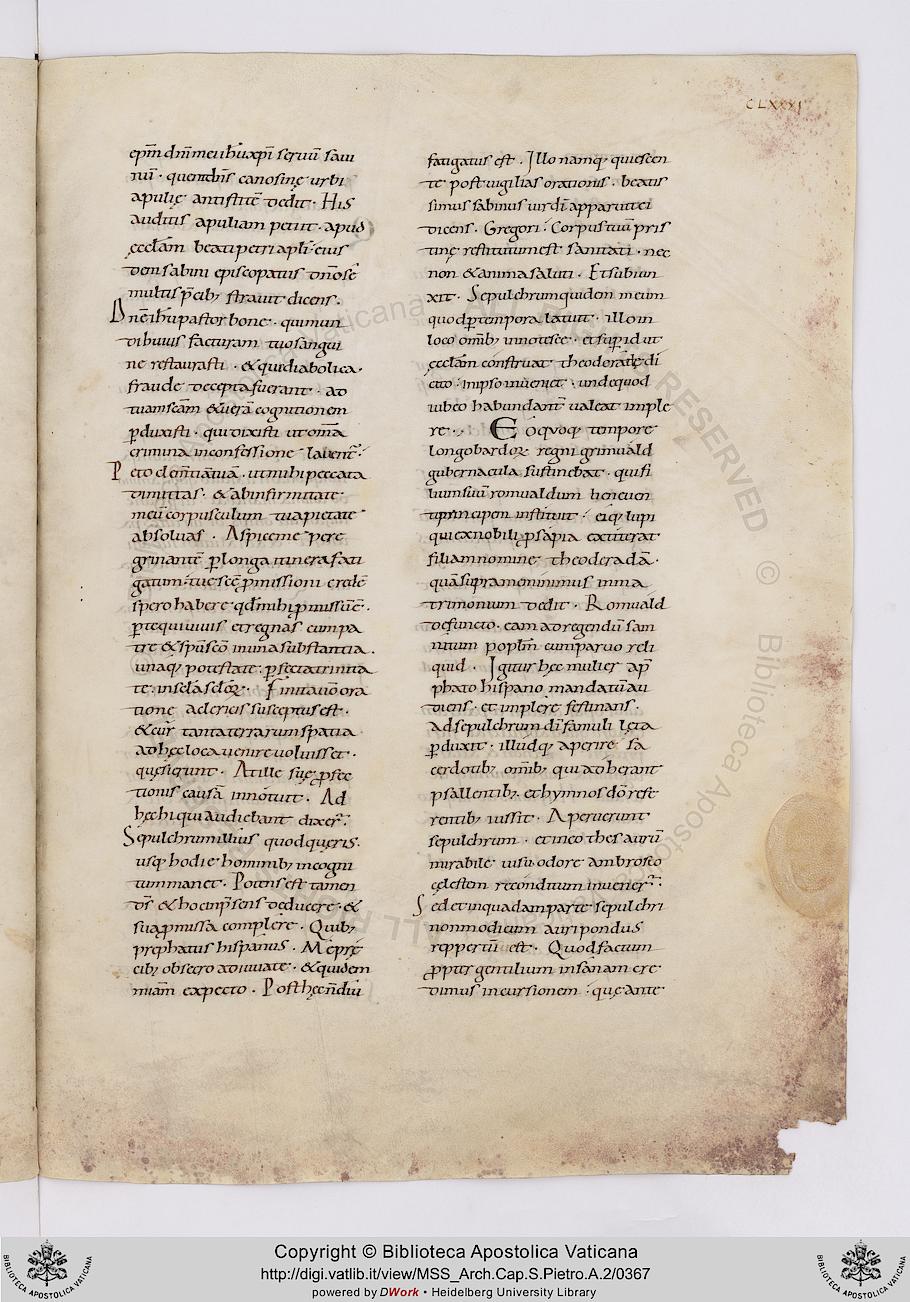 CLXXXI
ep̄m dn̄i mei ih̄u xp̄i seruū saui
nū · quem dn̄s canosinę urbi
apulię antistitē dedit · His
auditis apuliam petiit · apud
ęcclam̄ beati petri apl̄i · eius
dem sabini episcopatus dn̄o se
multis p̄cib; strauit dicens .
Dn̄e ih̄u pastor bone · qui mun
di huius facturam tuo sangui
ne restaurasti · & qui diabolica
fraude decepta fuerant · ad
tuam scām & uerā cognitionem
ꝑduxisti · qui dixisti ut om̄a
crimina in confessione lauent̄ :
Peto clem̄tiā tuā · ut mihi peccata
dimittas · & ab infirmitate
mei corpusculum tua pietate
absoluas · Aspice me pere
grinantē ꝑ longa itinera fati
gatum · tuę scę̄ ꝓmissioni credē
spero habere qd̄ mihi ꝓmissū ē ·
ꝑ te qui uiuis et regnas cum pa
tre & sp̄u sc̄o in una substantia .
unaq; potestate · ꝑfecta trinita
te · in sc̄la sc̄lor̄ · Finita uō ora
tione a clericis susceptus est ·
& cur̄ tanta terrarum spatia
ad hęc loca uenire uoluisset ·
quęsierunt · At ille suę ꝓfec
tionis causā innotuit · Ad
hęc hi qui audiebant dixer̄ :
Sepulchrum illius quod quęris ·
usq; hodie hominib; incogni
tum manet · Potens est tamen
ds̄ & hoc in p̄sens deducere · &
sua ꝓmissa complere · Quib;
prephatus hispanus · Me prę
cib; obsecro adiuuate · & quidem
niam̄ expecto · Post hęc n̄ diu
fatigatus est . Illo namq; quiescen
te post uigilias orationis · beatis
simus sabinus uir dī apparuit ei
dicens · Gregori : Corpus tuū pris
tinę restitutum est sanitati · nec
non & anima saluti · Et subiun
xit · Sepulchrum quidem meum
quod ꝑ tempora latuit · illo in
loco omīb; innotesce · et sup̄ id ut
ęcclam̄ construat theodoradę di
cito · in ipso inueniet · unde quod
iubeo habundant̄ ualeat imple
re · Eo quoq; tempore
longobardor̄ regni grimuald
gubernacula sustinebat · qui fi
lium suū romualdum beneuen
ti principem instituit · eiq; lupi
qui ex nobili ꝓsapia extiterat
filiam nomine theoderadā ·
quā supra meminimus in ma
trimonium dedit · Romuald
defuncto · eam ad regendū sam
nitum popl̄m cum paruo reli
quid · Igitur hęc mulier a p̄
phato hispano mandatū au
diens · et implere festinans ·
ad sepulchrum dī famuli lęta
ꝑduxit · illudq; aperire sa
cerdotib; omīb; qui adherant
psallentib; · et hymnos dō refe
rentib; iussit · Aperierunt
sepulchrum · et in eo thesaurū
mirabile uisu · odore ambroseo
cęlestem reconditum inuener̄ :
Sed et in quadam parte sepulchri
non modicum auri pondus
reppertū est · Quod factum
ꝓpter gentilium insanam cre
dimus incursionem : quę ante
Copyright © Biblioteca Apostolica Vaticana
http://digi.vatlib.it/view/MSS_Arch.Cap.S.Pietro.A.2/0367
powered by DWork • Heidelberg University Library